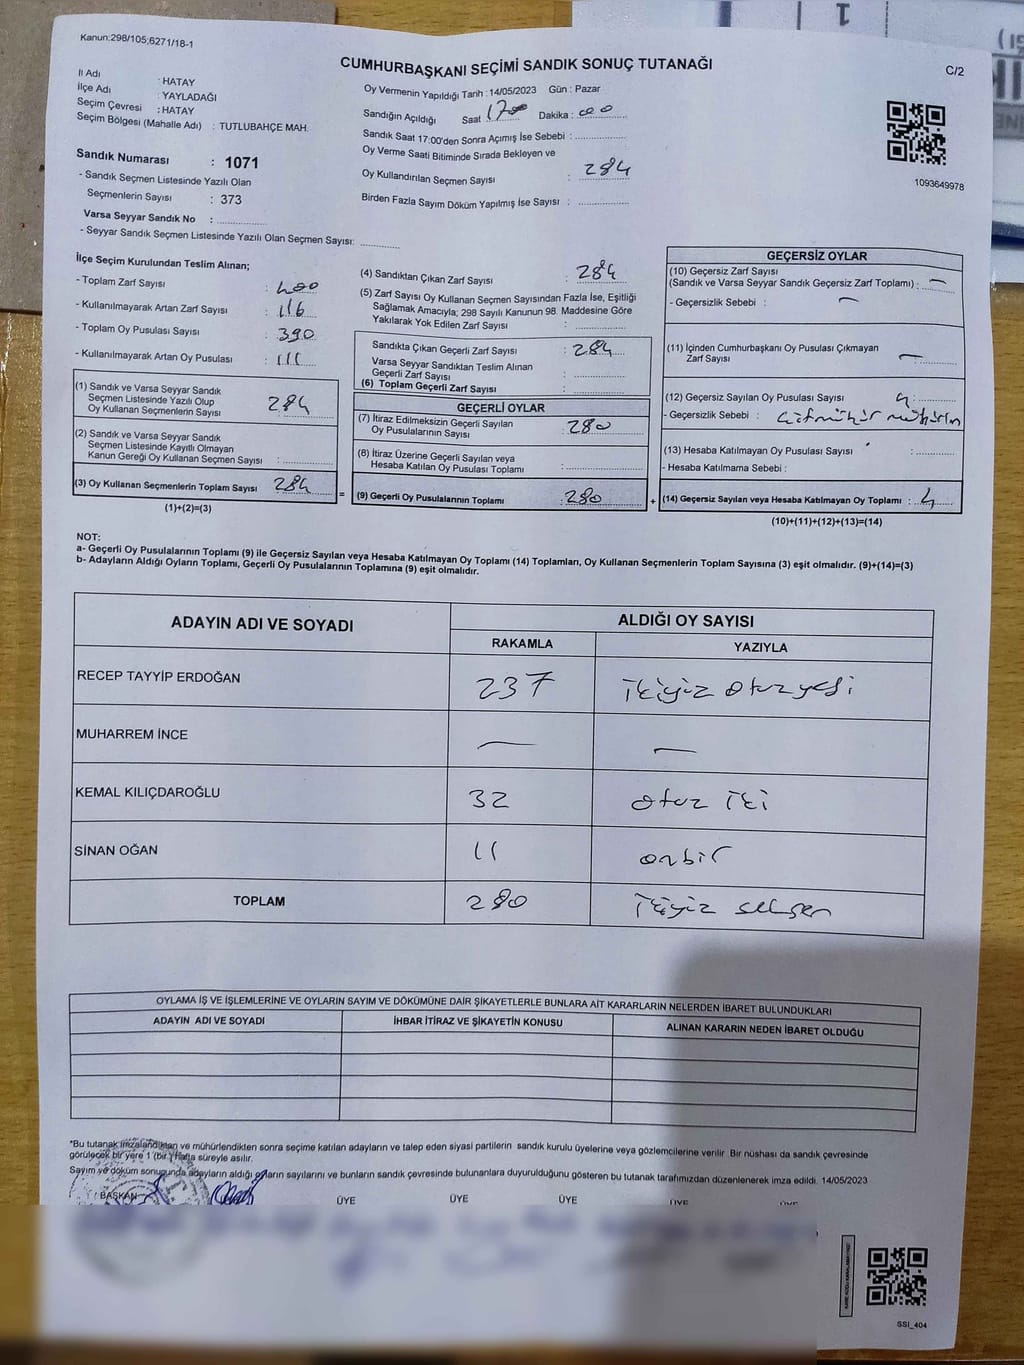 Kanun:298/105;6271/18-1
CUMHURBAŞKANI SEÇİMİ SANDIK SONUÇ TUTANAĞI
C/2
İl Adı : HATAY
İlçe Adı : YAYLADAĞI
Seçim Çevresi : HATAY
Seçim Bölgesi (Mahalle Adı) : TUTLUBAHÇE MAH.
Sandık Numarası : 1071
- Sandık Seçmen Listesinde Yazılı Olan
Seçmenlerin Sayısı : 373
Varsa Seyyar Sandık No :
- Seyyar Sandık Seçmen Listesinde Yazılı Olan Seçmen Sayısı:
Oy Vermenin Yapıldığı Tarih : 14/05/2023 Gün : Pazar
Sandığın Açıldığı Saat 1700 Dakika : 00
Sandık Saat 17:00'den Sonra Açımış İse Sebebi :
Oy Verme Saati Bitiminde Sırada Bekleyen ve
Oy Kullandırılan Seçmen Sayısı : 284
Birden Fazla Sayım Döküm Yapılmış İse Sayısı :
1093649978
İlçe Seçim Kurulundan Teslim Alınan;
- Toplam Zarf Sayısı : 400
- Kullanılmayarak Artan Zarf Sayısı : 116
- Toplam Oy Pusulası Sayısı : 390
- Kullanılmayarak Artan Oy Pusulası : 111
(1) Sandık ve Varsa Seyyar Sandık
Seçmen Listesinde Yazılı Olup
Oy Kullanan Seçmenlerin Sayısı : 284
(2) Sandık ve Varsa Seyyar Sandık
Seçmen Listesinde Kayıtlı Olmayan
Kanun Gereği Oy Kullanan Seçmen Sayısı :
(3) Oy Kullanan Seçmenlerin Toplam Sayısı 284
(1)+(2)=(3)
(4) Sandıktan Çıkan Zarf Sayısı : 284
(5) Zarf Sayısı Oy Kullanan Seçmen Sayısından Fazla İse, Eşitliği
Sağlamak Amacıyla; 298 Sayılı Kanunun 98. Maddesine Göre
Yakılarak Yok Edilen Zarf Sayısı :
Sandıkta Çıkan Geçerli Zarf Sayısı : 284
Varsa Seyyar Sandıktan Teslim Alınan
Geçerli Zarf Sayısı :
(6) Toplam Geçerli Zarf Sayısı :
GEÇERLİ OYLAR
(7) İtiraz Edilmeksizin Geçerli Sayılan
Oy Pusulalarının Sayısı : 280
(8) İtiraz Üzerine Geçerli Sayılan veya
Hesaba Katılan Oy Pusulası Toplamı :
= (9) Geçerli Oy Pusulalarının Toplamı : 280 +
GEÇERSİZ OYLAR
(10) Geçersiz Zarf Sayısı
(Sandık ve Varsa Seyyar Sandık Geçersiz Zarf Toplamı) : —
- Geçersizlik Sebebi : —
(11) İçinden Cumhurbaşkanı Oy Pusulası Çıkmayan
Zarf Sayısı —
(12) Geçersiz Sayılan Oy Pusulası Sayısı 4
- Geçersizlik Sebebi : çift mühür
(13) Hesaba Katılmayan Oy Pusulası Sayısı :
- Hesaba Katılmama Sebebi :
(14) Geçersiz Sayılan veya Hesaba Katılmayan Oy Toplamı : 4
(10)+(11)+(12)+(13)=(14)
NOT:
a- Geçerli Oy Pusulalarının Toplamı (9) ile Geçersiz Sayılan veya Hesaba Katılmayan Oy Toplamı (14) Toplamları, Oy Kullanan Seçmenlerin Toplam Sayısına (3) eşit olmalıdır. (9)+(14)=(3)
b- Adayların Aldığı Oyların Toplamı, Geçerli Oy Pusulalarının Toplamına (9) eşit olmalıdır.
ADAYIN ADI VE SOYADI ALDIĞI OY SAYISI
RAKAMLA YAZIYLA
RECEP TAYYİP ERDOĞAN 237 ikiyüz otuzyedi
MUHARREM İNCE — —
KEMAL KILIÇDAROĞLU 32 otuz iki
SİNAN OĞAN 11 onbir
TOPLAM 280 ikiyüz seksen
OYLAMA İŞ VE İŞLEMLERİNE VE OYLARIN SAYIM VE DÖKÜMÜNE DAİR ŞİKAYETLERLE BUNLARA AİT KARARLARIN NELERDEN İBARET BULUNDUKLARI
ADAYIN ADI VE SOYADI İHBAR İTİRAZ VE ŞİKAYETİN KONUSU ALINAN KARARIN NEDEN İBARET OLDUĞU
*Bu tutanak imzalandıktan ve mühürlendikten sonra seçime katılan adayların ve talep eden siyasi partilerin sandık kurulu üyelerine veya gözlemcilerine verilir. Bir nüshası da sandık çevresinde
görülecek bir yere 1 (bir) Hafta süreyle asılır.
Sayım ve döküm sonucunda adayların aldığı oyların sayılarını ve bunların sandık çevresinde bulunanlara duyurulduğunu gösteren bu tutanak tarafımızdan düzenlenerek imza edildi. 14/05/2023
BAŞKAN ÜYE ÜYE ÜYE ÜYE
SSI_404